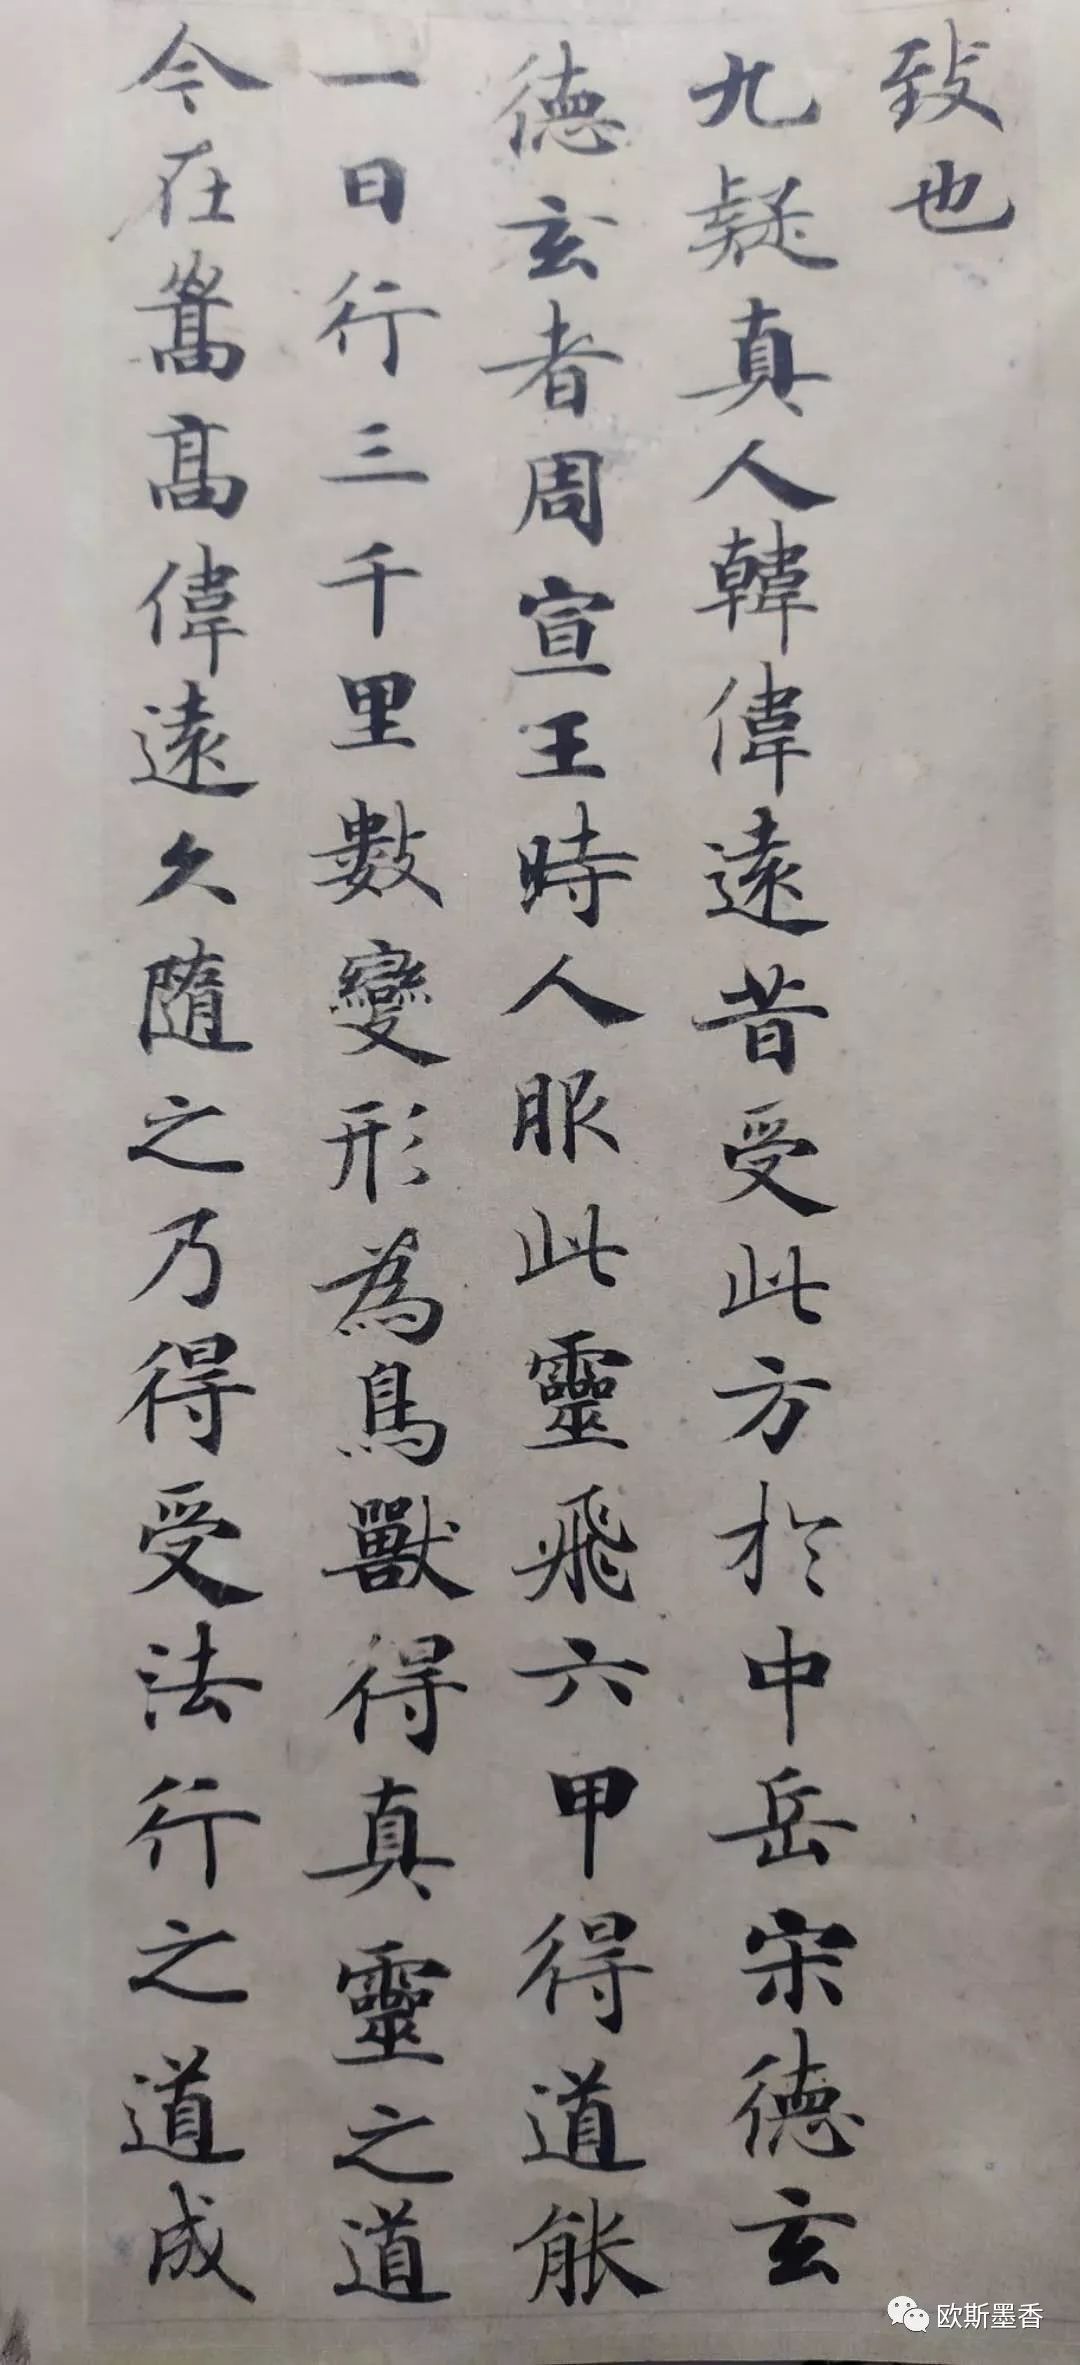 致也
九疑真人韓偉遠昔受此方於中岳宋德玄
德玄者周宣王時人服此靈飛六甲得道能
一日行三千里數變形為鳥獸得真靈之道
今在嵩高偉遠久隨之乃得受法行之道成
欧斯墨香